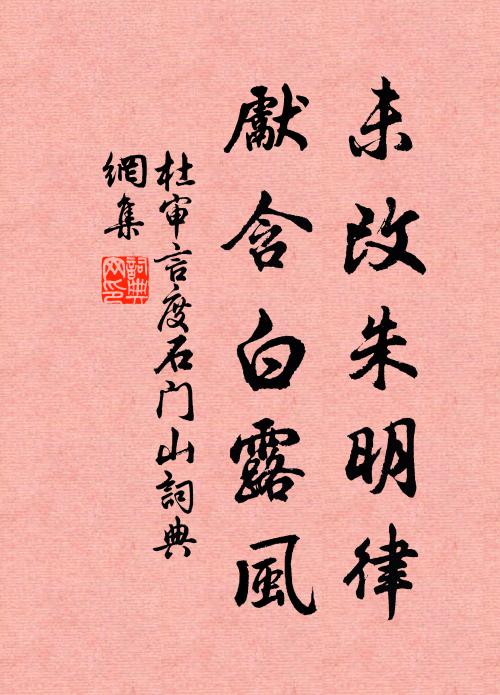 未改朱明律
獻含白露風
杜审言度石门山詞典
網集
詞典
网印